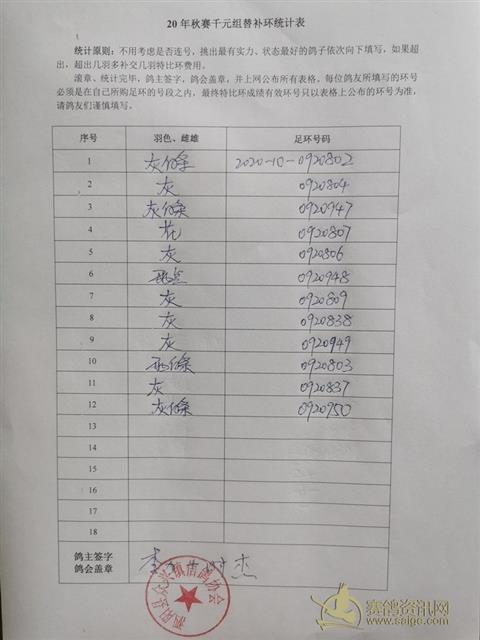 20年秋赛千元组替补环统计表
统计原则:不用考虑是否连号,挑出最有实力、状态最好的鸽子依次向下填写,如果超
出,超出几羽多补交几羽特比环费用。
滚章、统计完毕,鸽主签字,鸽会盖章,并上网公布所有表格,每位鸽友所填写的环号
必须是在自己所购足环的号段之内,最终特比环成绩有效环号只以表格上公布的环号为准,
请鸽友们谨慎填写。
序号 羽色、雌雄 足环号码
1 灰條 2020-10-0920802
2 灰 0920804
3 灰條 0920947
4 花 0920807
5 灰 0920806
6 0920948
7 灰 0920809
8 灰 0920838
9 灰 0920949
10 0920803
11 灰 0920837
12 灰條 0920950
13
14
15
16
17
18
鸽主签字
鸽会盖章
赛鸽资讯网
www.saigo.com